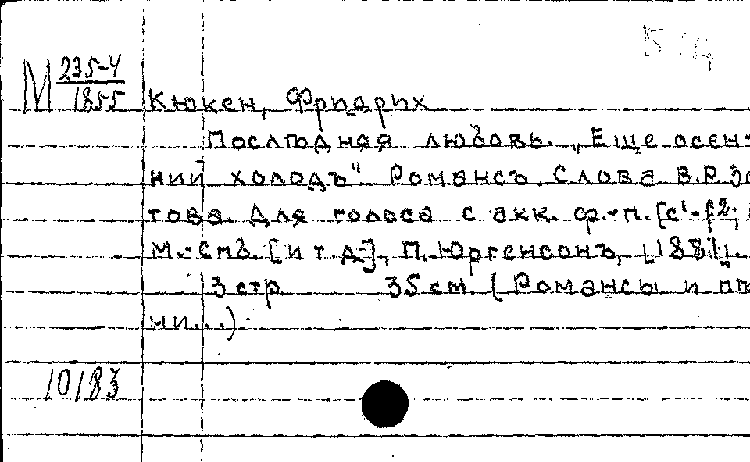 М 235-4
1855
Кюкен, Фридрих
Последняя любовь. „Еще осен-
ний холодъ". Романсъ. Слова В.Р. Зо
това. Для голоса с акк. ф.-п. [c¹-f²;
М.-Спб. [и т.д.], П. Юргенсонъ, [188
3 стр. 35 см (Романсы и п
ни...)
10183